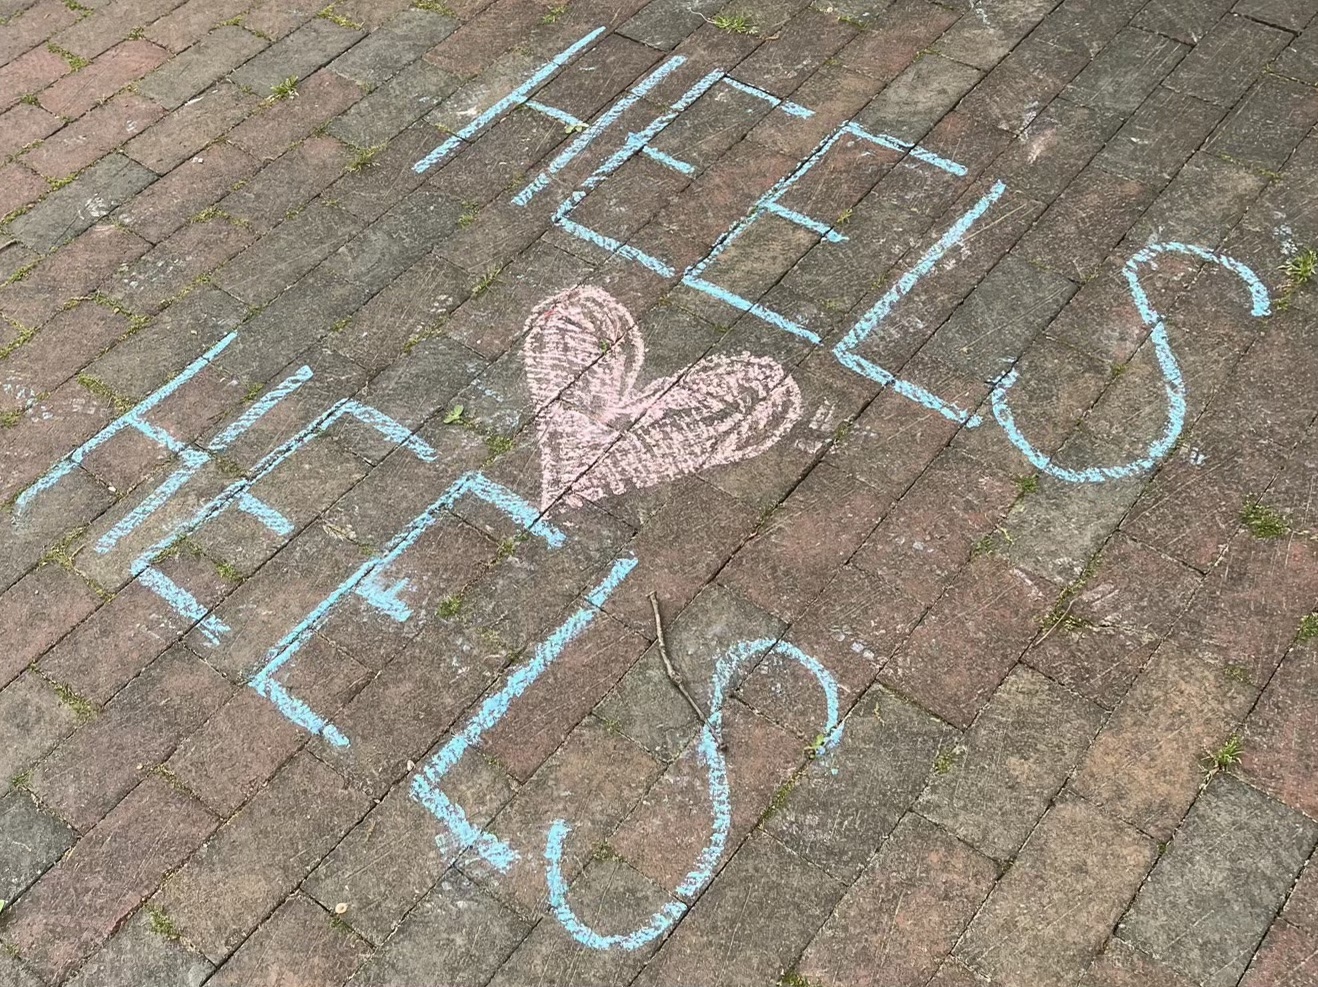 HEELS
HEELS